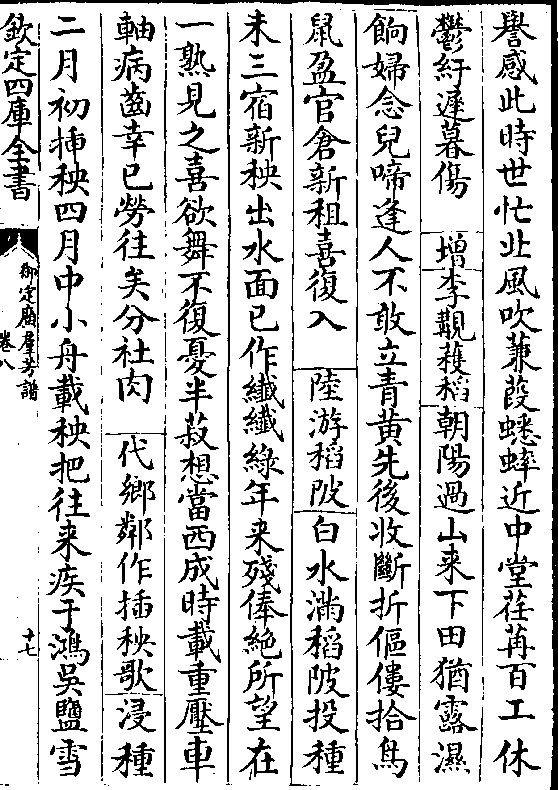 譽感此時世忙北風吹蒹葭蟋蟀近中堂荏苒百工休
鬱紆遲暮傷 增李覯穫稻朝陽過山来下田猶露濕
餉婦念兒啼逢人不敢立青黃先後收斷折傴僂拾鳥
鼠盈官倉新租喜復入 陸游稻陂白水滿稻陂投種
未三宿新秧出水面已作纖纖綠年来殘俸絶所望在
一熟見之喜欲舞不復憂半菽想當西成時載重壓車
軸病齒幸已勞往矣分社肉 代鄉鄰作插秧歌浸種
二月初揷秧四月中小舟載秧把往来疾于鴻吳鹽雪
欽定四庫全書
御定廣羣芳譜
卷八
十七